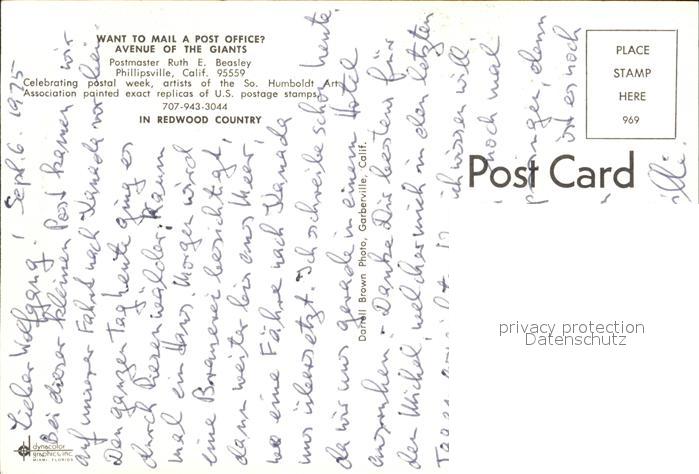 WANT TO MAIL A POST OFFICE?
AVENUE OF THE GIANTS
Postmaster Ruth E. Beasley
Phillipsville, Calif. 95559
Celebrating postal week, artists of the So. Humboldt Arts
Association painted exact replicas of U.S. postage stamps.
707-943-3044
IN REDWOOD COUNTRY
PLACE
STAMP
HERE
969
Post Card
Darrell Brown Photo, Garberville, Calif.
dynacolor
graphics, inc.
MIAMI, FLORIDA
Lieber Wolfgang! Sept. 6. 1975
Bei dieser kleinen Post kamen wir
auf unserer Fahrt nach Kanada vorbei.
Den ganzen Tag heute ging es
durch Riesenwälder, kaum
mal ein Haus. Morgen wird
eine Brauerei besichtigt,
dann weiter bis ans Meer,
wo eine Fähre nach Kanada
uns übersetzt. Ich schreibe schon heute,
da wir uns gerade in einem Hotel
ausruhen. Danke Dir bestens für
den Michel, welcher mich in den letzten
Tagen
ich wissen will
noch mal
denn
ist es noch
privacy protection
Datenschutz